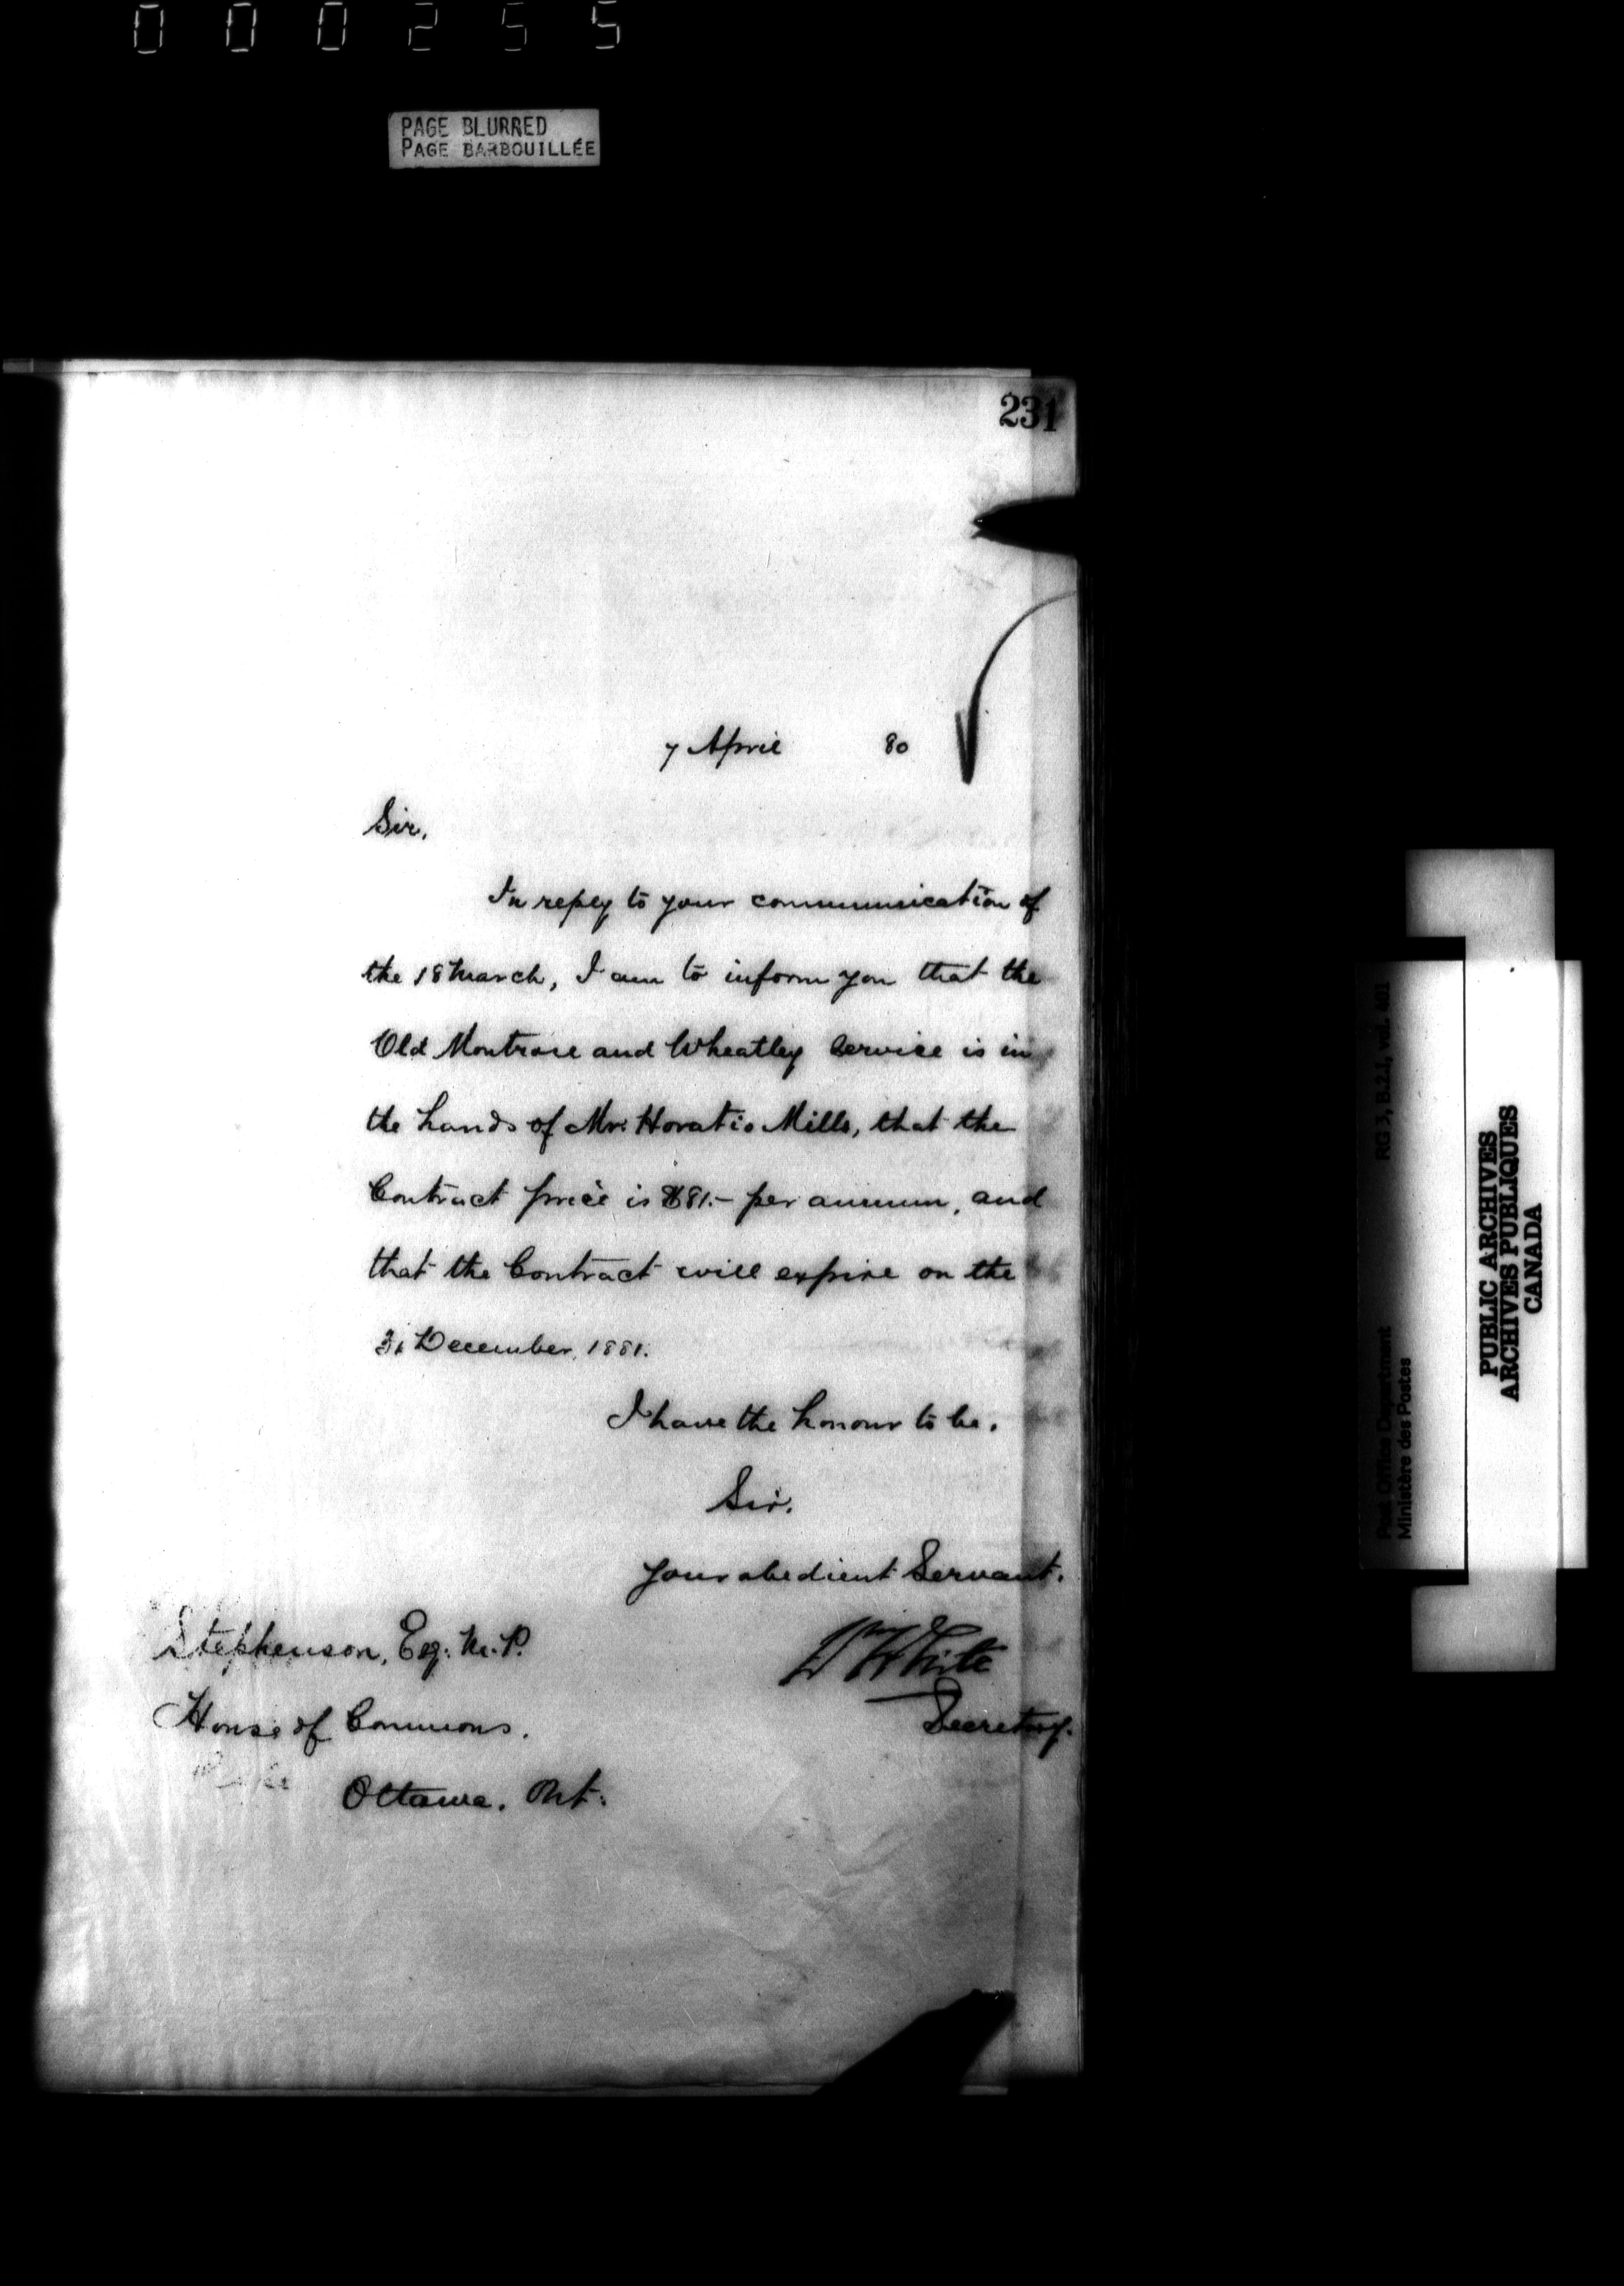 000255
PAGE BLURRED
PAGE BARBOUILLÉE
231
7 April 80
Sir,
In reply to your communication of
the 18 March, I am to inform you that the
Old Montrose and Wheatley Service is in
the hands of Mr. Horatio Mills, that the
Contract price is $81.- per annum, and
that the Contract will expire on the
31 December, 1881.
I have the honour to be,
Sir,
Your obedient Servant.
Stephenson, Esq. M.P.
Wm White
House of Commons.
Secretary.
Ottawa. Ont:
RG 3, B.2.1, vol. 401
Post Office Department
Ministère des Postes
PUBLIC ARCHIVES
ARCHIVES PUBLIQUES
CANADA